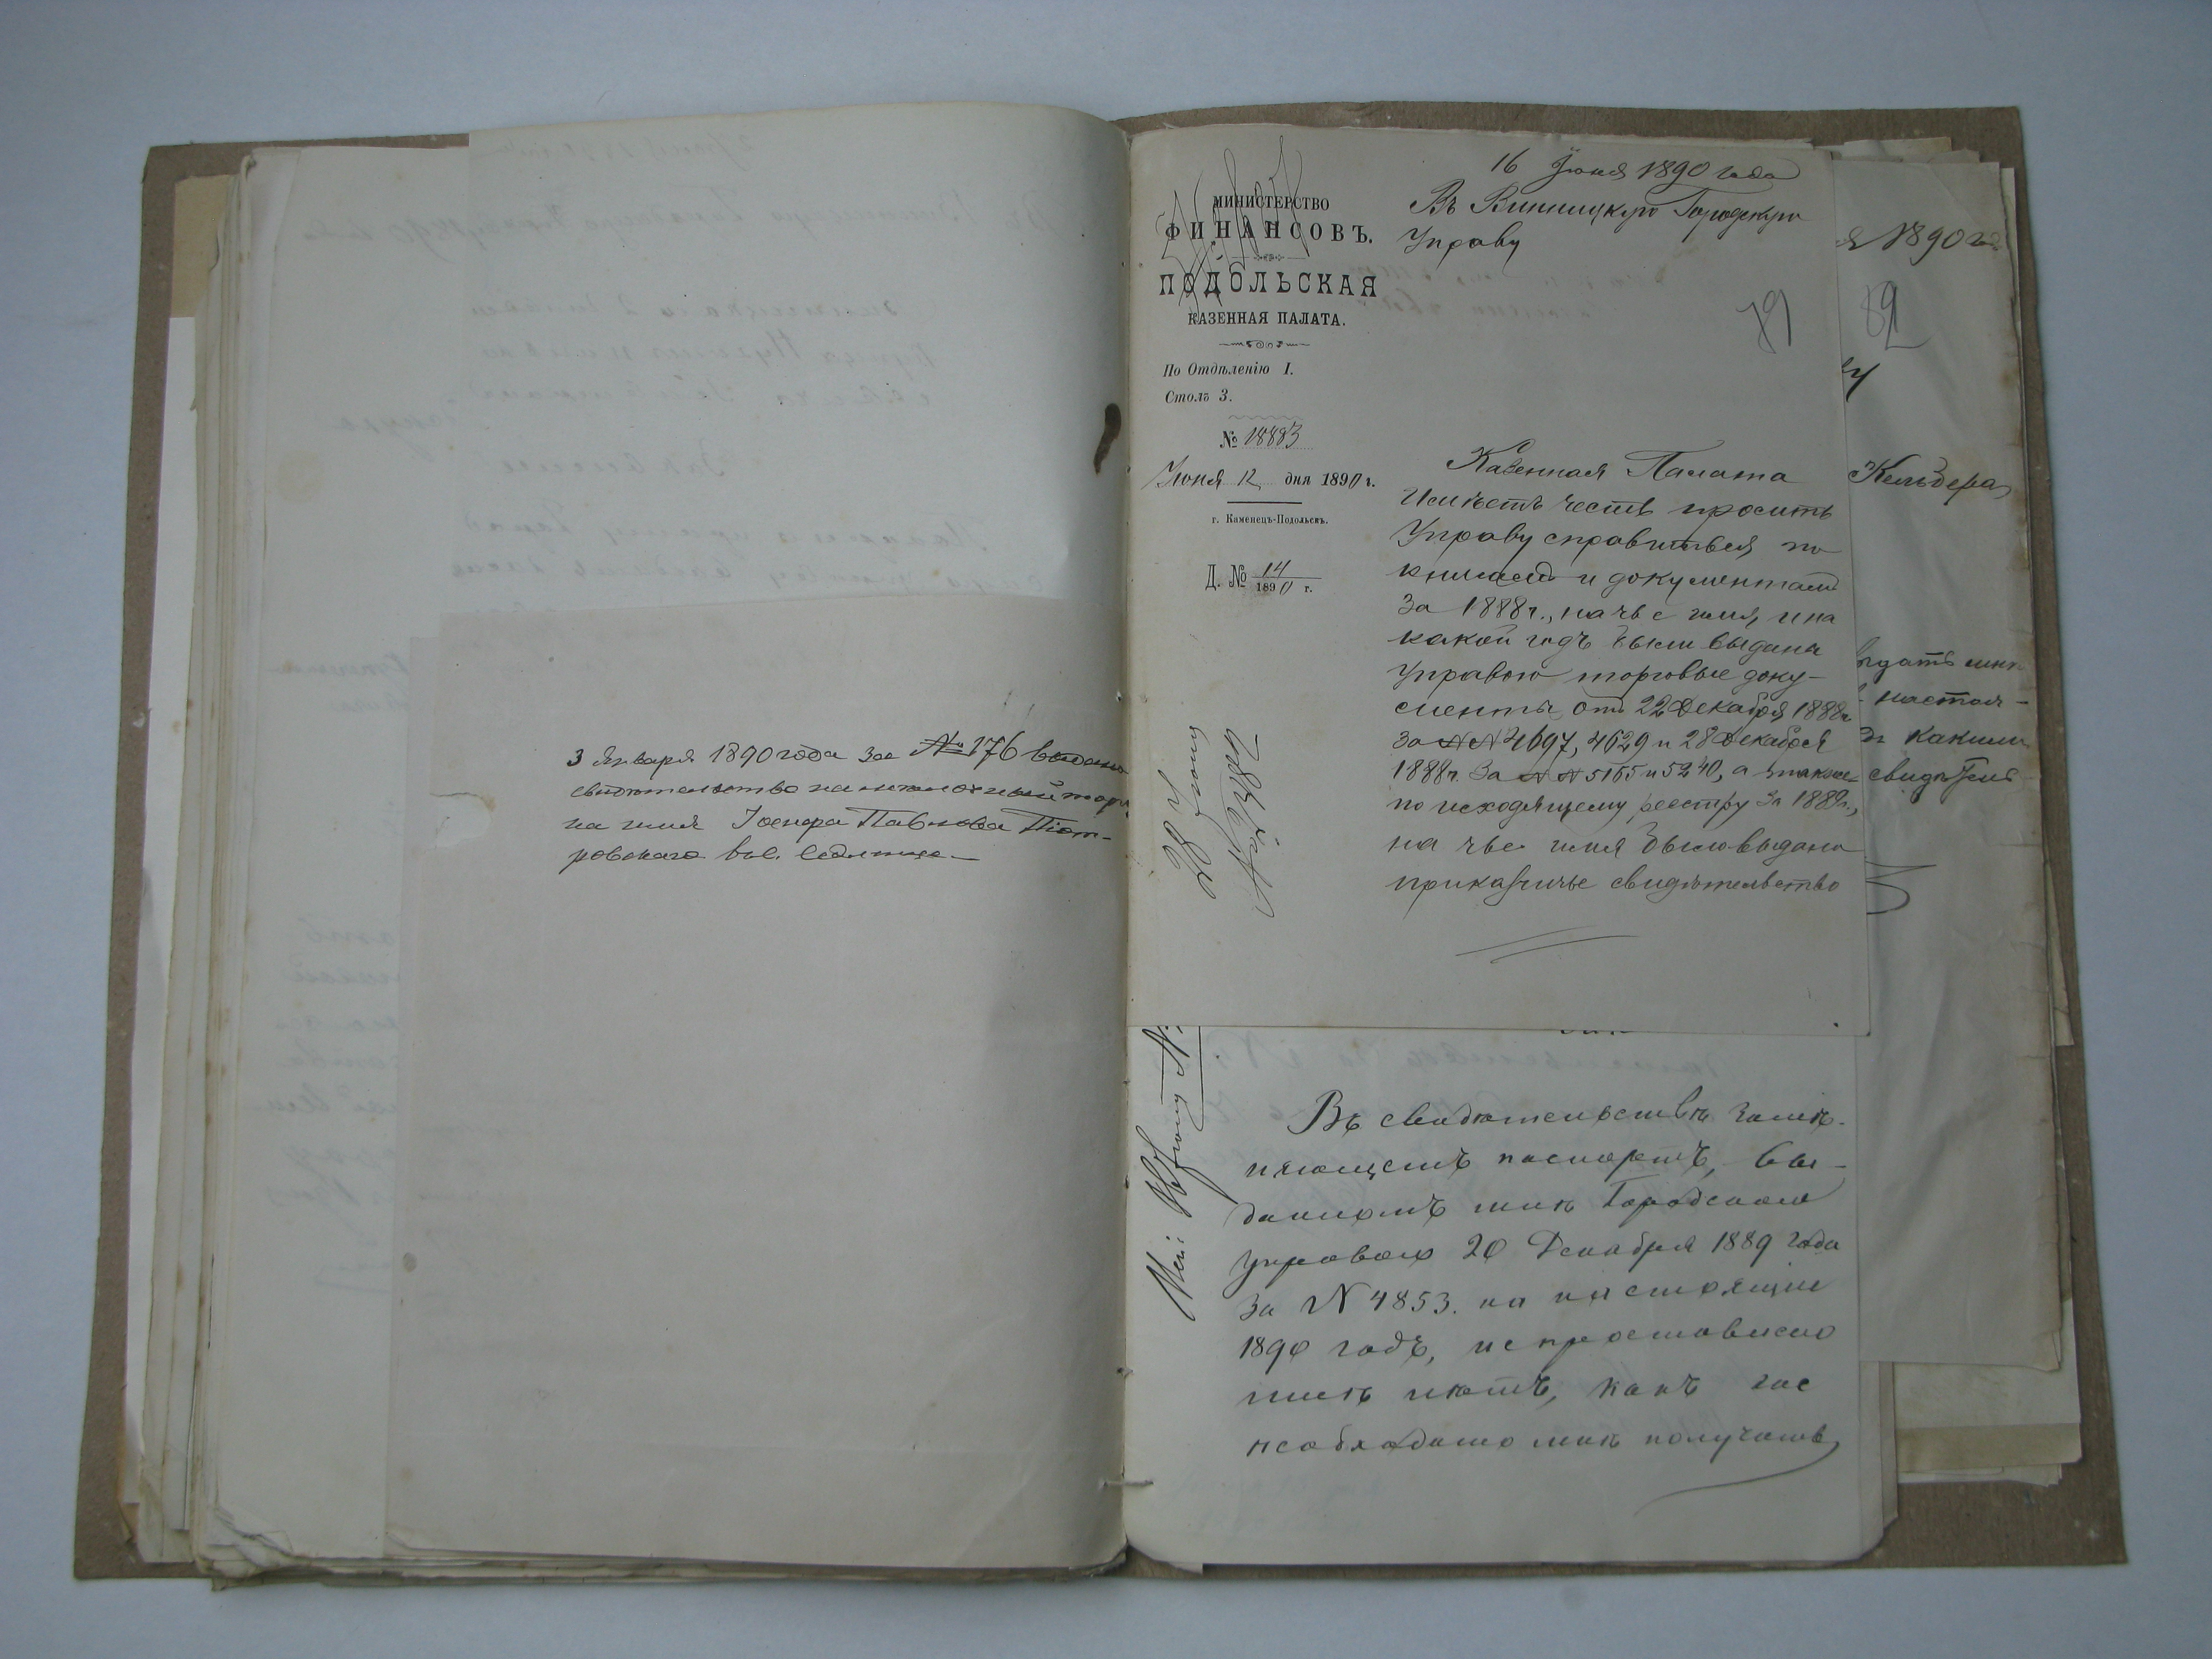 3 Января 1890 года за № 176 выдано
свидѣтельство на мелочный торгъ
на имя Іосифа Павлова Піот-
ровскаго
16 Іюня 1890 года
Въ Винницкую Городскую
Управу
МИНИСТЕРСТВО
ФИНАНСОВЪ.
ПОДОЛЬСКАЯ
КАЗЕННАЯ ПАЛАТА.
По Отдѣленію I.
Столъ 3.
№ 18883
Іюня 12 дня 1890 г.
г. Каменецъ-Подольскъ.
Д. № 14
1890 г.
79
Казенная Палата
имѣетъ честь просить
Управу справиться по
книгамъ и документамъ
за 1888 г., на чье имя, и на
какой годъ были выданы
Управою торговые доку-
менты отъ 22 Декабря 1888 г.
за №№ 4697, 4629 и 28 Декабря
1888 г. за №№ 5165 и 5240, а также
по исходящему реестру за 1889 г.,
на чье имя было выдано
приказчичье свидѣтельство
Въ свидѣтельствѣ замѣ-
няющемъ паспортъ, вы-
данномъ мнѣ Городскою
управою 20 Декабря 1889 года
за N 4853. на настоящій
1890 годъ, не проставлено
мнѣ лѣтъ, какъ же
необходимо мнѣ получить
я 1890 го
82
Кельдера
выдать мнѣ
настоя-
какимъ
свидѣтель